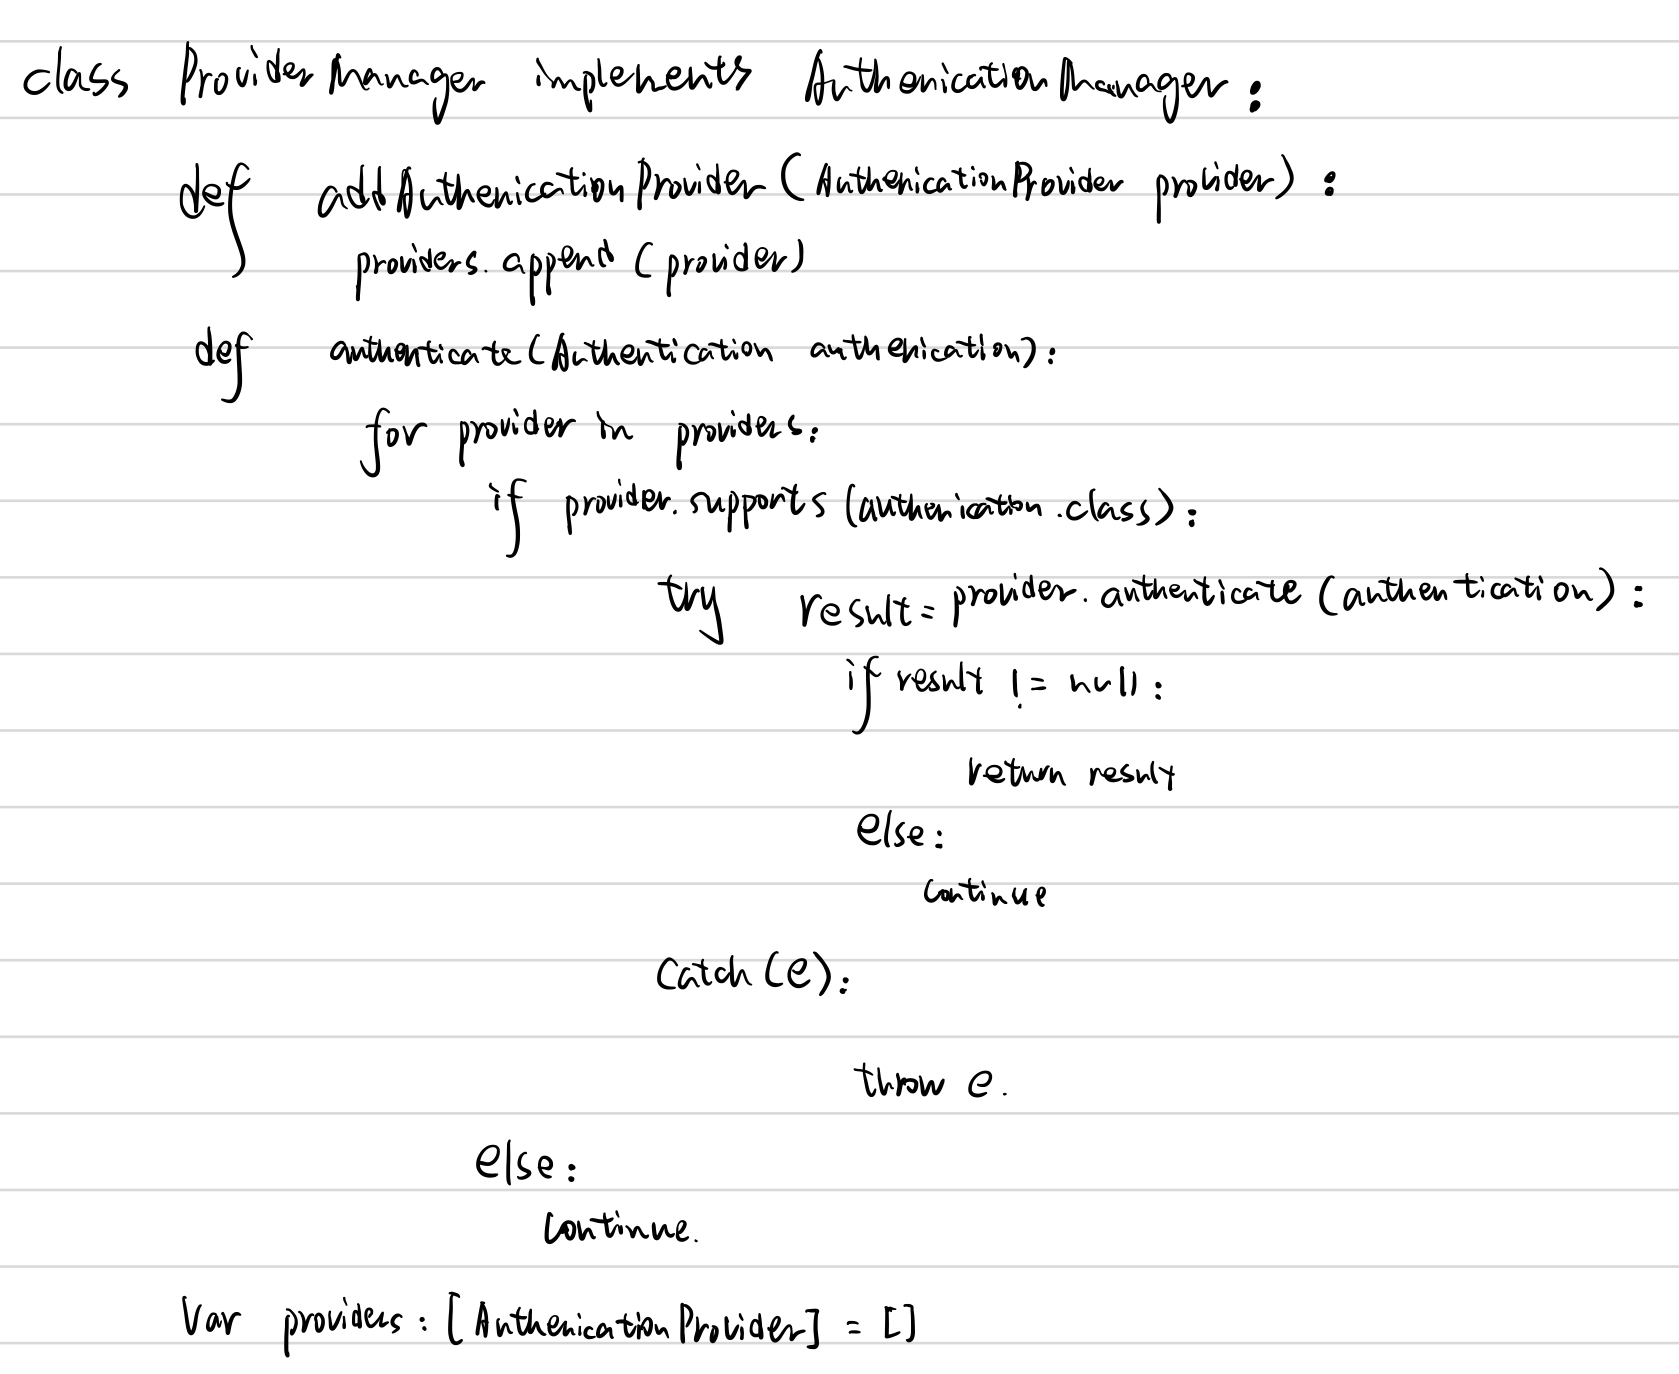 class ProviderManager implements AuthenicationManager:
def addAuthenicationProvider (AuthenicationProvider provider):
providers.append (provider)
def authenticate (Authentication authenication):
for provider in providers:
if provider.supports (authenication.class):
try result = provider.authenticate (authentication):
if result != null:
return result
else:
continue
Catch (e):
throw e.
else:
continue.
Var providers: [AuthenicationProvider] = []